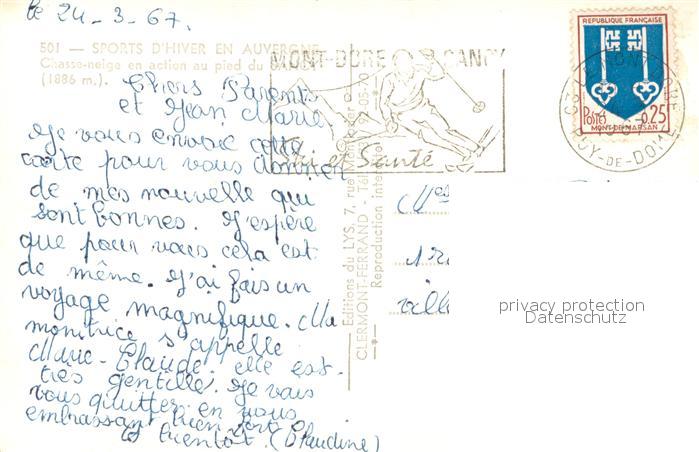 le 24-3-67.
501 — SPORTS D'HIVER EN AUVERGNE
Chasse-neige en action au pied du
(1886 m.).
MONT-DORE SANCY
Ski et Santé
REPUBLIQUE FRANÇAISE
POSTES 0,25
MONT-DE-MARSAN
PUY-DE-DOME
Chers Parents
et Jean Marie
Je vous envoie cette
carte pour vous donner
de mes nouvelle qui
sont bonnes. J'espère
que pour vous cela est
de même. J'ai fais un
voyage magnifique. Ma
monitrice s'appelle
Marie-Claude. elle est
très gentille. Je vais
vous quitter en vous
embrassant bien fort
à bientôt. (Claudine)
Editions du LYS, 7, rue
CLERMONT-FERRAND - Tél.
Reproduction interdite
privacy protection
Datenschutz